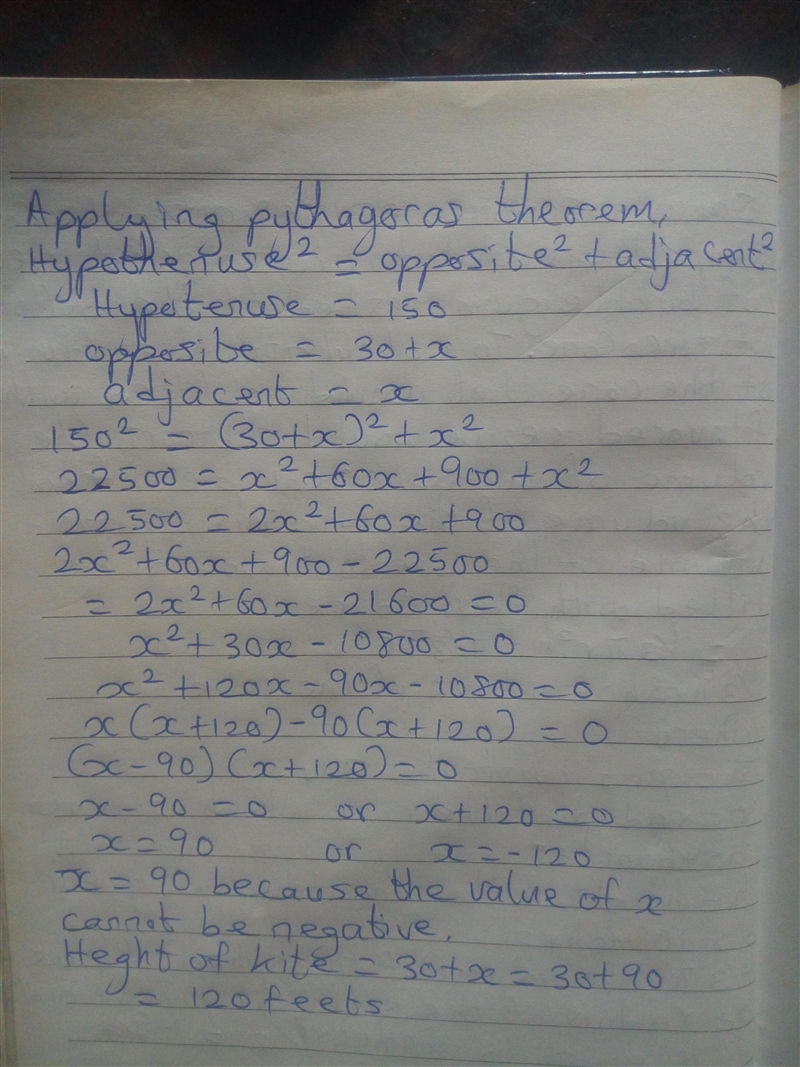 Applying pythagoras theorem,
Hypothenuse² = opposite² + adjacent²
Hypotenuse = 150
opposite = 30+x
adjacent = x
150² = (30+x)² + x²
22500 = x²+60x+900+x²
22500 = 2x²+60x+900
2x²+60x+900-22500
= 2x²+60x-21600=0
x²+30x-10800=0
x²+120x-90x-10800=0
x(x+120)-90(x+120)=0
(x-90)(x+120)=0
x-90=0 or x+120=0
x=90 or x=-120
x=90 because the value of x
cannot be negative.
Heght of kite = 30+x = 30+90
= 120 feets